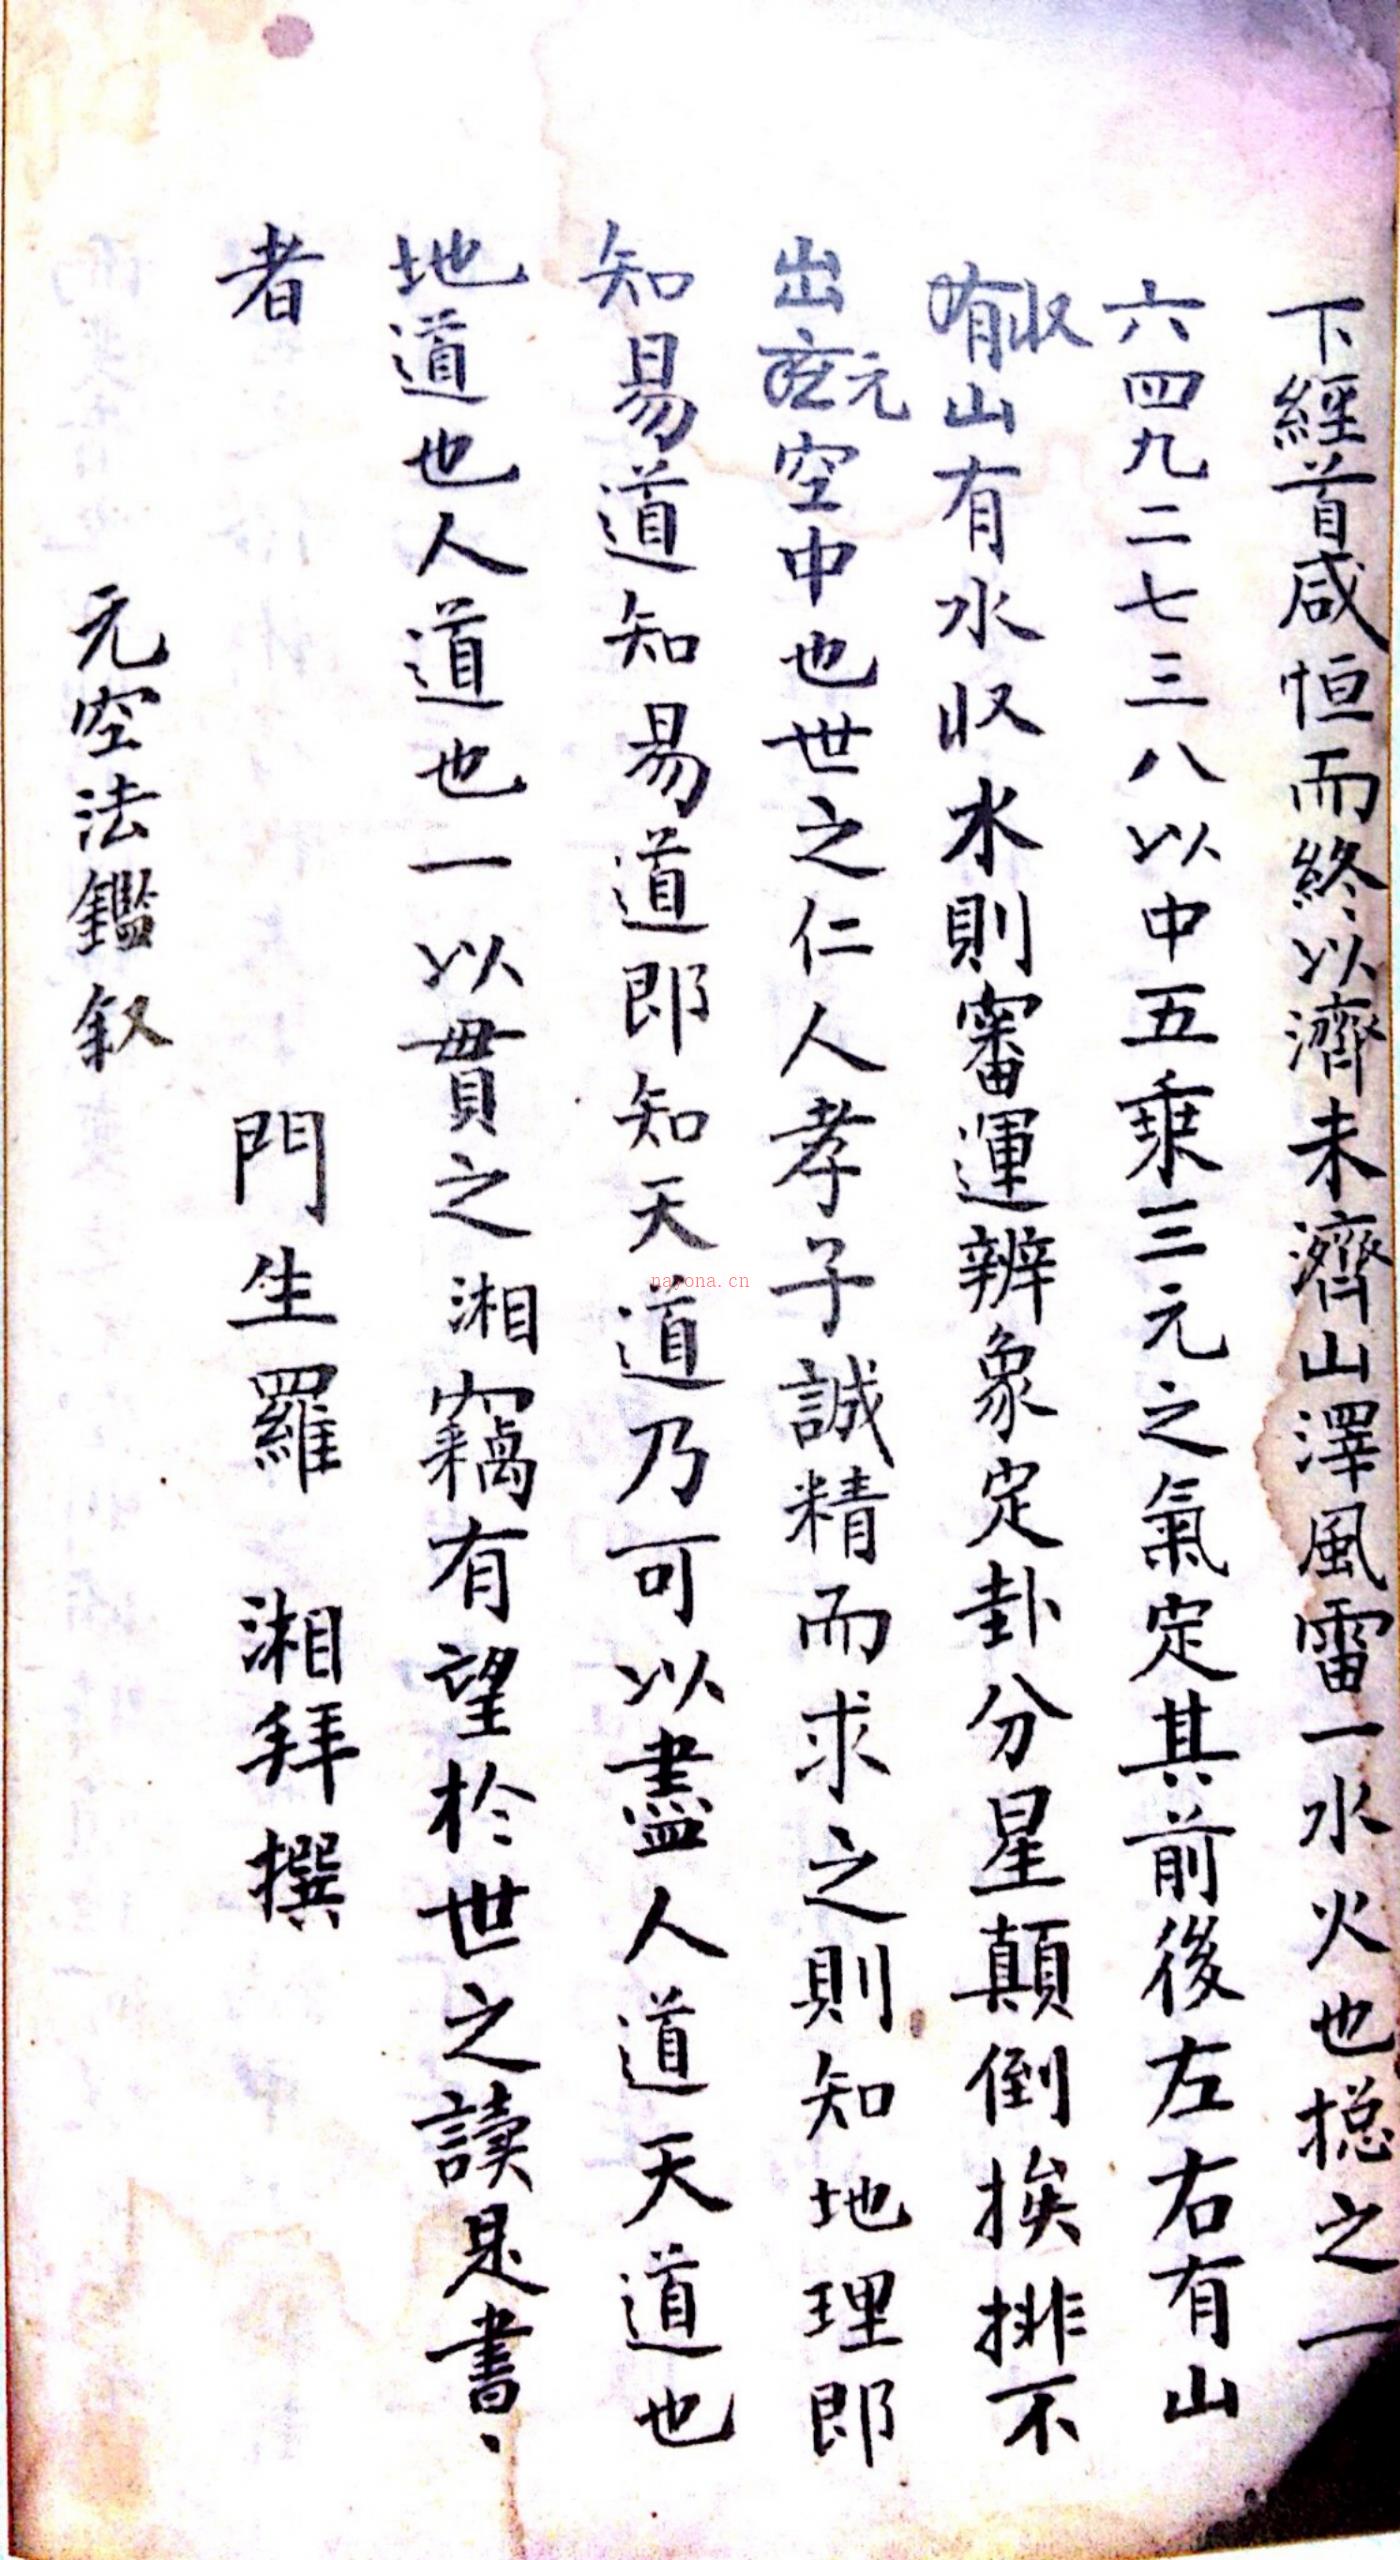 下經首咸恒而終以濟未濟山澤風雷一水火也揔之一
六四九二七三八以中五乘三元之氣定其前後左右有山
收山有水収水則審運辨象定卦分星顛倒挨排不
出元空中也世之仁人孝子誠精而求之則知地理即
知易道知易道即知天道乃可以盡人道天道也
地道也人道也一以貫之湘竊有望於世之讀是書
者　門生羅　湘拜撰
元空法鑑叙
nayona.cn